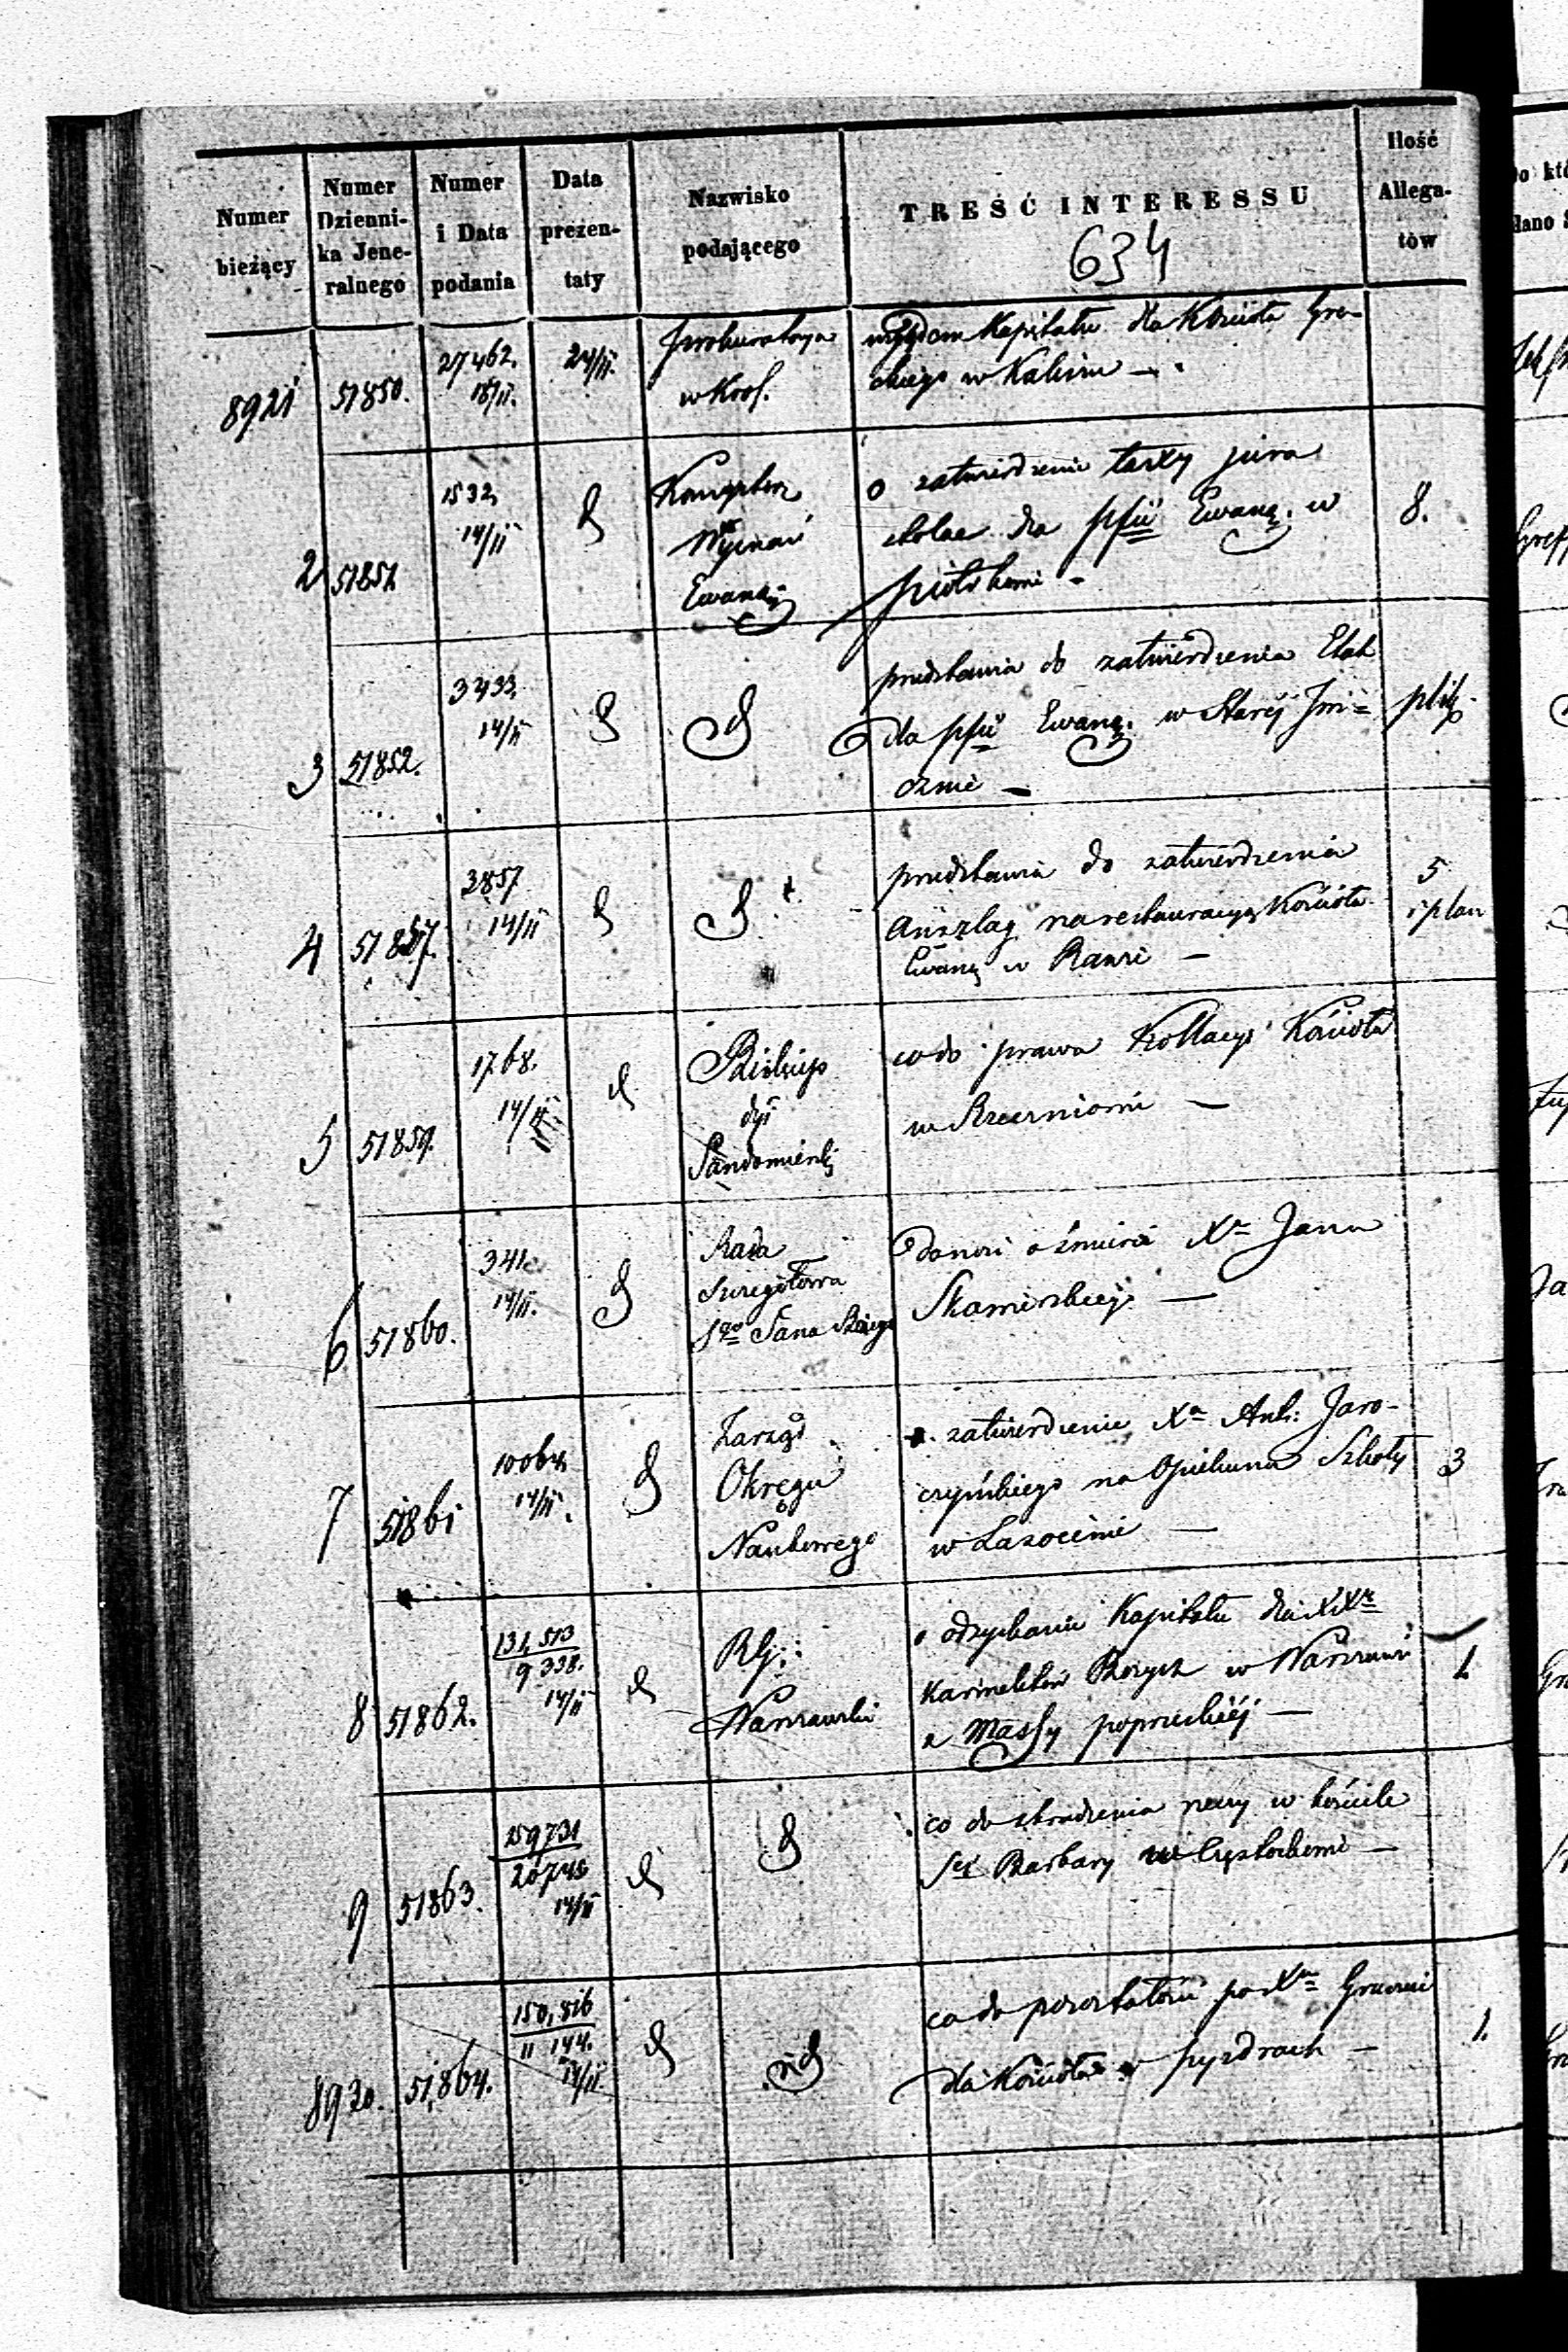 Numer bieżący
Numer Dzienni-ka Jene-ralnego
Numer i Data podania
Data prezen-taty
Nazwisko podającego
TREŚĆ INTERESSU
634
Ilość Allega-tów
8921
51850.
27462.
18/II.
24/II.
w Król.
względem Kapitału dla Kościoła Gre-
ckiego w Kaliszu —
2
51851
1532
14/II
Konsystorz
Wyznań
Ewang
o zatwierdzenie taxy jura
stolae dla pfii Ewang. w
8.
3
51852.
3433
14/II
przedstawia do zatwierdzenia Etat
dla pfii Ewang. w Starej Jwi=
cznie —
4
51857.
3857
14/II
przedstawia do zatwierdzenia
Anszlag na restauracyą Kościoła
Ewang w Rawie —
5
i plan
5
51859.
1768.
14/II
Biskup
dyi
Sandomierski
co do prawa Kollacyi Kościoła
w
6
51860.
341
14/II.
Rada
Szczegółowa
donosi o śmierci Xa Jana
7
51861
10064
14/II.
Zarząd
Okręgu
Naukowego
o zatwierdzenie Xa Ant: Jaro-
czyńskiego na Opiekuna Szkoły
w Lasocinie —
3
8
51862.
131,513
9 338.
14/II
RG:
Warszawski
o odzyskanie Kapitału dla XXy
Karmelitów Bosych w Warszawie
z Massy popruskiej —
1.
9
51863.
259731
20748
14/II
co do skradzenia rzeczy w kościele
Sej Barbary w Częstochowie —
8930.
51,864.
150,816
11 144.
14/II
co do pozostałości po Xu
dla Kościoła w Pyzdrach —
1.